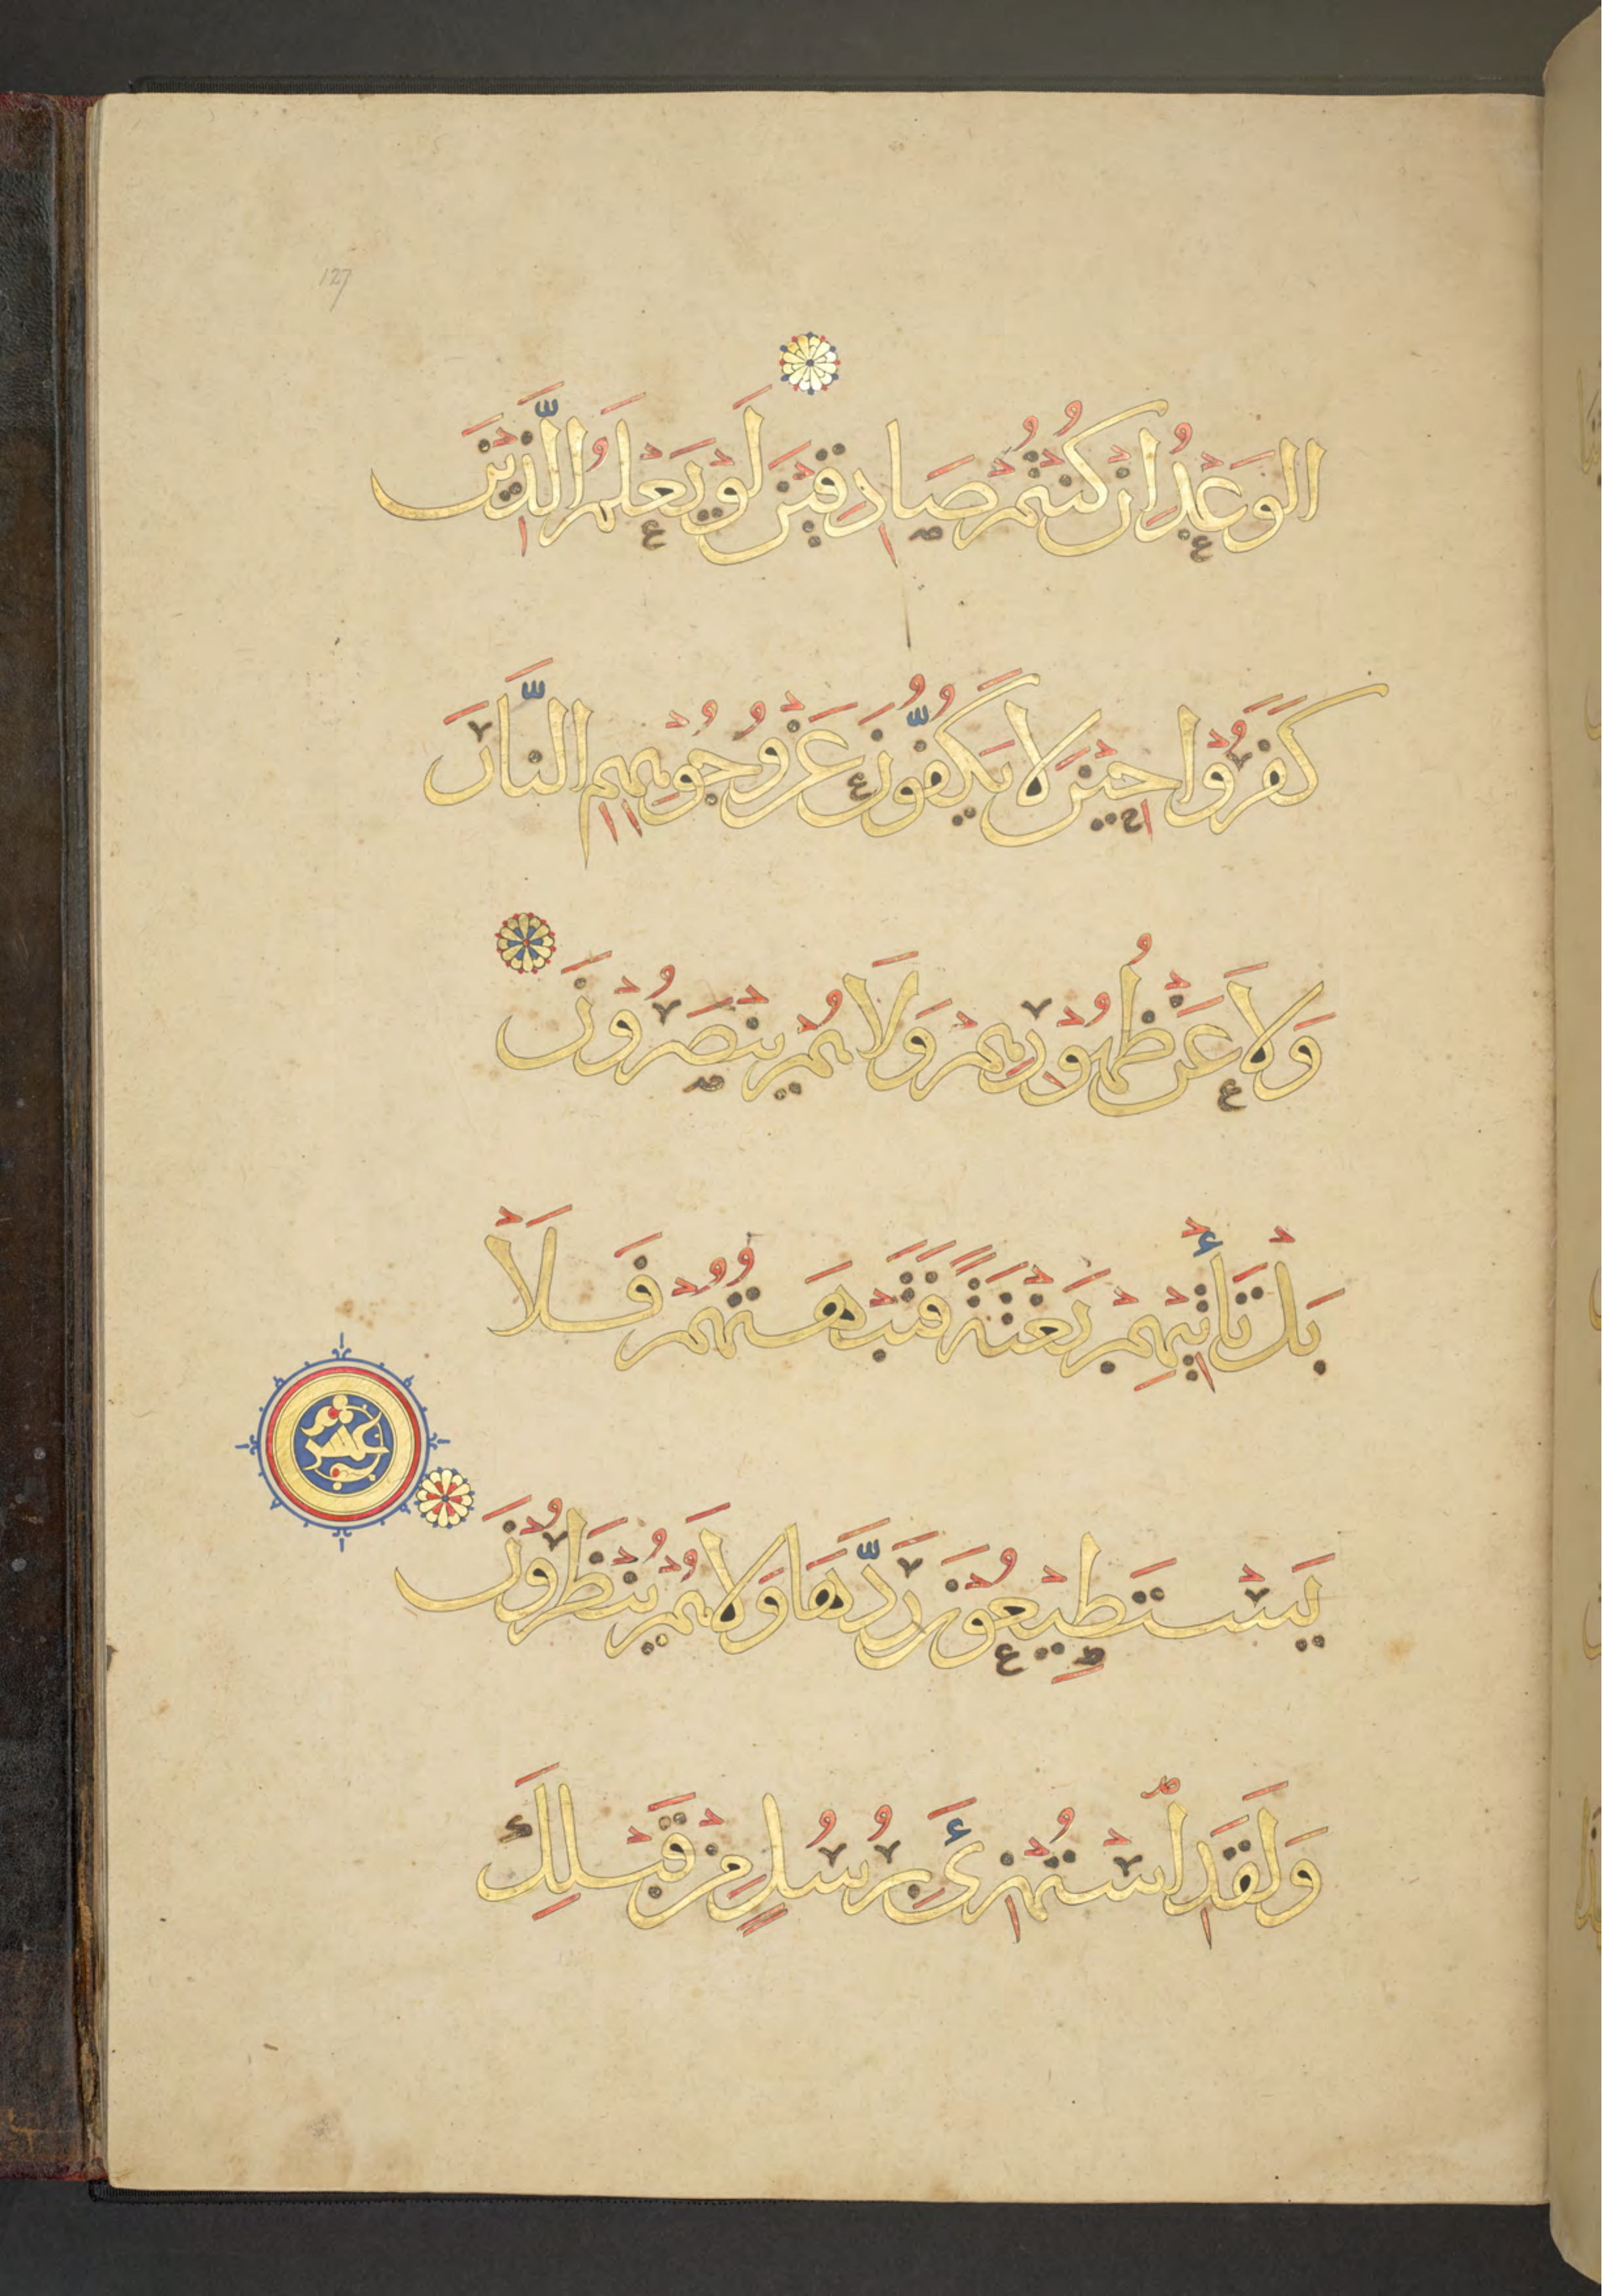 127
الوَعْدُ اِنْ كُنْتُمْ صَادِقِيْنَ لَوْ يَعْلَمُ الَّذِيْنَ
كَفَرُوْا حِيْنَ لَا يَكُفُّوْنَ عَنْ وُجُوْهِهِمِ النَّارَ
وَلَا عَنْ ظُهُوْرِهِمْ وَلَا هُمْ يُنْصَرُوْنَ
بَلْ تَأْتِيْهِمْ بَغْتَةً فَتَبْهَتُهُمْ فَلَا
عشر
يَسْتَطِيْعُوْنَ رَدَّهَا وَلَا هُمْ يُنْظَرُوْنَ
وَلَقَدِ اسْتُهْزِئَ بِرُسُلٍ مِنْ قَبْلِكَ